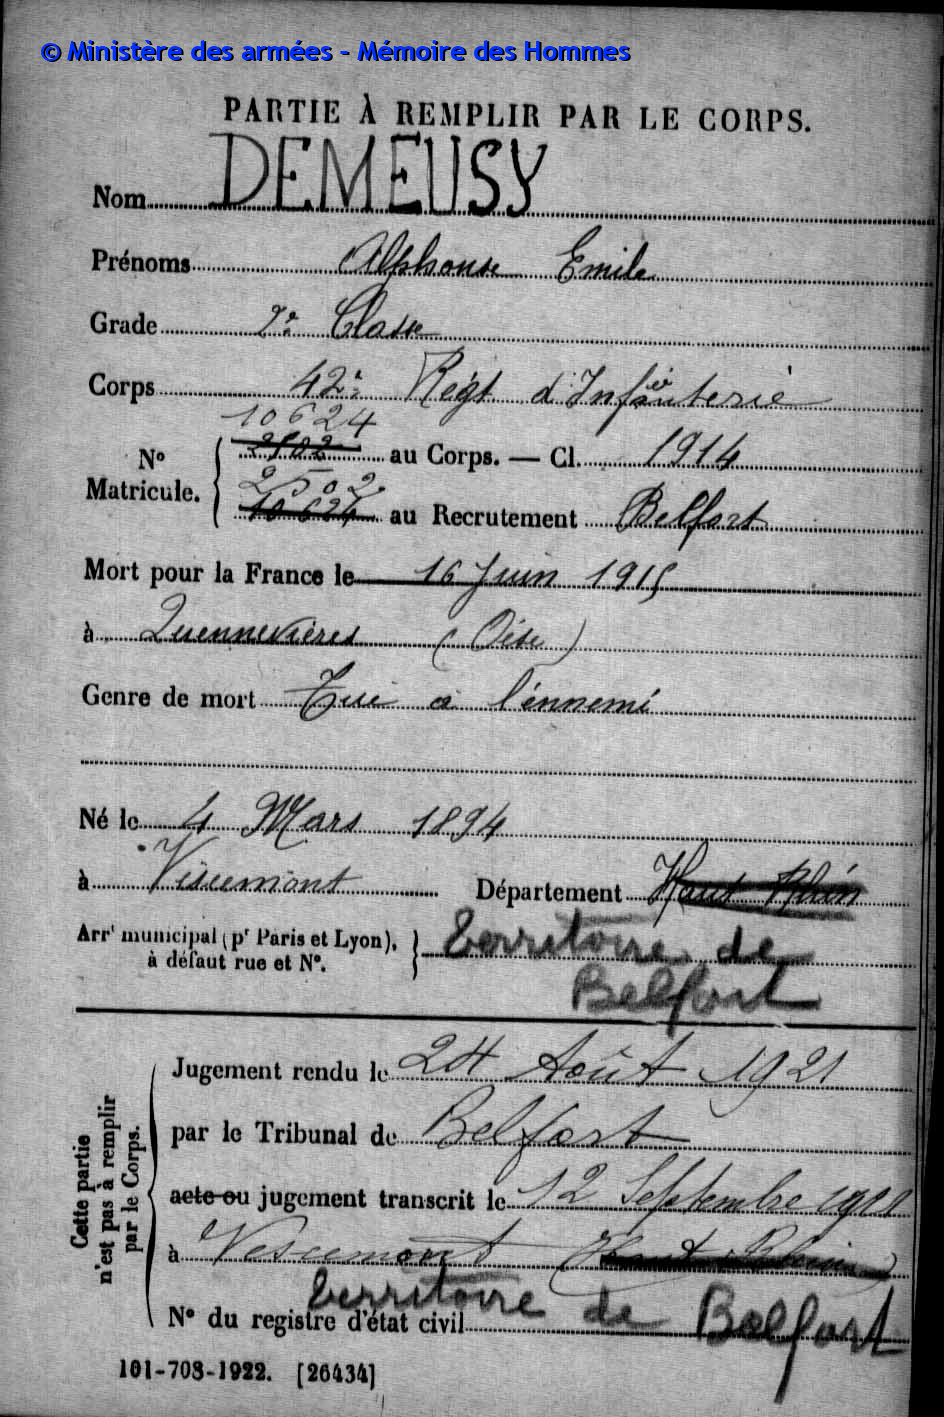 © Ministère des armées - Mémoire des Hommes
PARTIE À REMPLIR PAR LE CORPS.
Nom DEMEUSY
Prénoms Alphonse Emile
Grade 2e Classe
Corps 42e Régt d'Infanterie
10624
2502 au Corps. — Cl. 1914
No
Matricule.
2502
10624 au Recrutement Belfort
Mort pour la France le 16 Juin 1915
à Quennevières (Oise)
Genre de mort Tué à l'ennemi
Né le 4 Mars 1894
à Vescemont Département Haut Rhin
Arrt municipal (pr Paris et Lyon), Territoire de
à défaut rue et No. Belfort
Jugement rendu le 24 Août 1921
par le Tribunal de Belfort
acte ou jugement transcrit le 12 Septembre 1921
à Vescemont (Haut Rhin)
Territoire de Belfort
No du registre d'état civil
Cette partie
n'est pas à remplir
par le Corps.
101-708-1922. [26434]